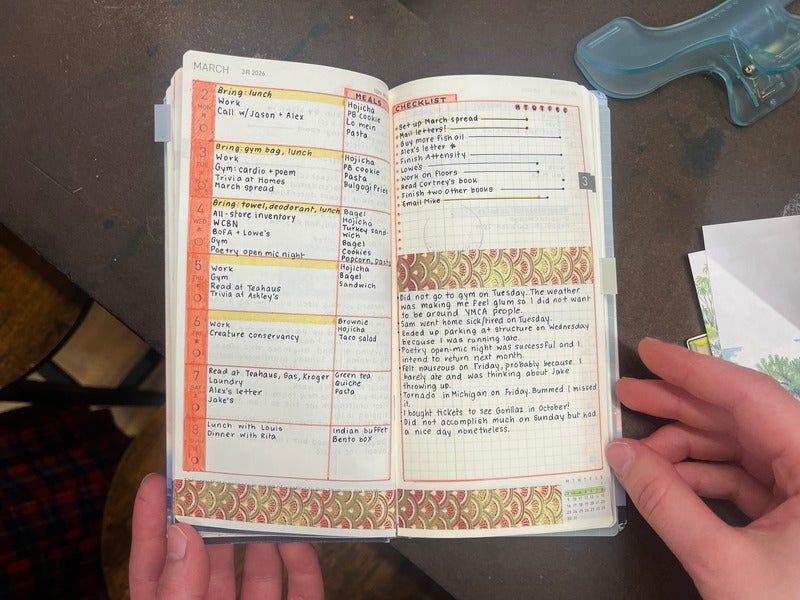 MARCH 3月 2026
2
MON
Bring: lunch
Work
Call w/Jason + Alex
3
Bring: gym bag, lunch
Work
Gym: cardio + poem
Trivia at Homes
March spread
4
WED
Bring: towel, deodorant, lunch
All-store inventory
WCBN
BofA + Lowe's
Gym
Poetry open mic night
5
Work
Gym
Read at Teahaus
Trivia at Ashley's
6
FRI
Work
Creature conservancy
7
SAT
Read at Teahaus, Gas, Kroger
Laundry
Alex's letter
Jake's
8
Lunch with Louis
Dinner with Rita
MEALS
Hojicha
PB Cookie
Lo mein
Pasta
Hojicha
PB cookie
Pasta
Bulgogi fries
Bagel
Hojicha
Turkey sand-
wich
Bagel
Cookies
Popcorn, pasta
Hojicha
Bagel
Sandwich
Brownie
Hojicha
Taco salad
Green tea
Quiche
Pasta
Indian buffet
Bento box
CHECKLIST
M T W T F S S
Set up March spread
Mail letters!
Buy more fish oil
Alex's letter
Finish Attensity
Lowe's
Work on floors
Read Cortney's book
Finish two other books
Email Mike
3
Did not go to gym on Tuesday. The weather
was making me feel glum so I did not want
to be around YMCA people.
Sam went home sick/tired on Tuesday.
Ended up parking at structure on Wednesday
because I was running late.
Poetry open-mic night was successful and I
intend to return next month.
Felt nauseous on Friday, probably because I
barely ate and was thinking about Jake
throwing up.
Tornado in Michigan on Friday. Bummed I missed
it.
I bought tickets to see Gorillaz in October!
Did not accomplish much on Sunday but had
a nice day nonetheless.
M T W T F S S